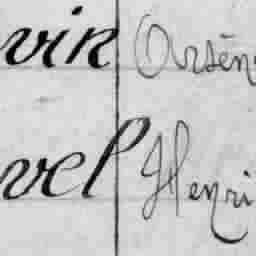 vik Arsèn
vel Henri